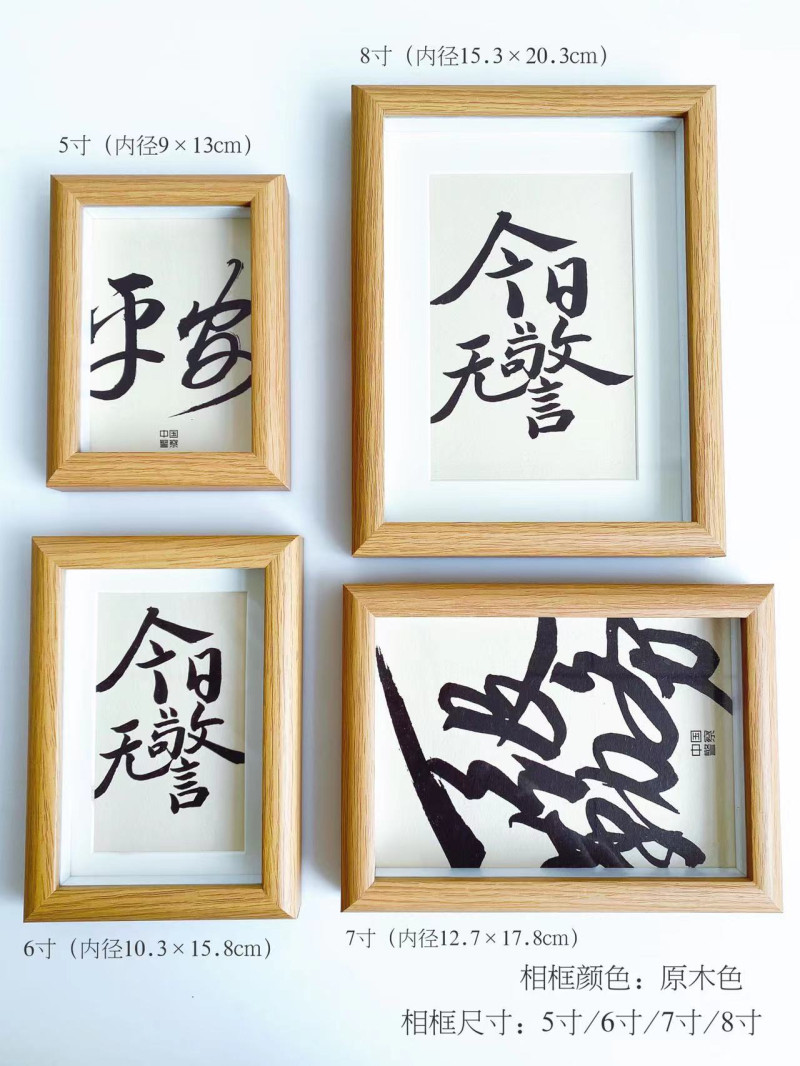 8寸（内径15.3×20.3cm）
5寸（内径9×13cm）
平安
中国
警察
今日
无警
今日
无警
中国
警察
6寸（内径10.3×15.8cm）
7寸（内径12.7×17.8cm）
相框颜色：原木色
相框尺寸：5寸/6寸/7寸/8寸